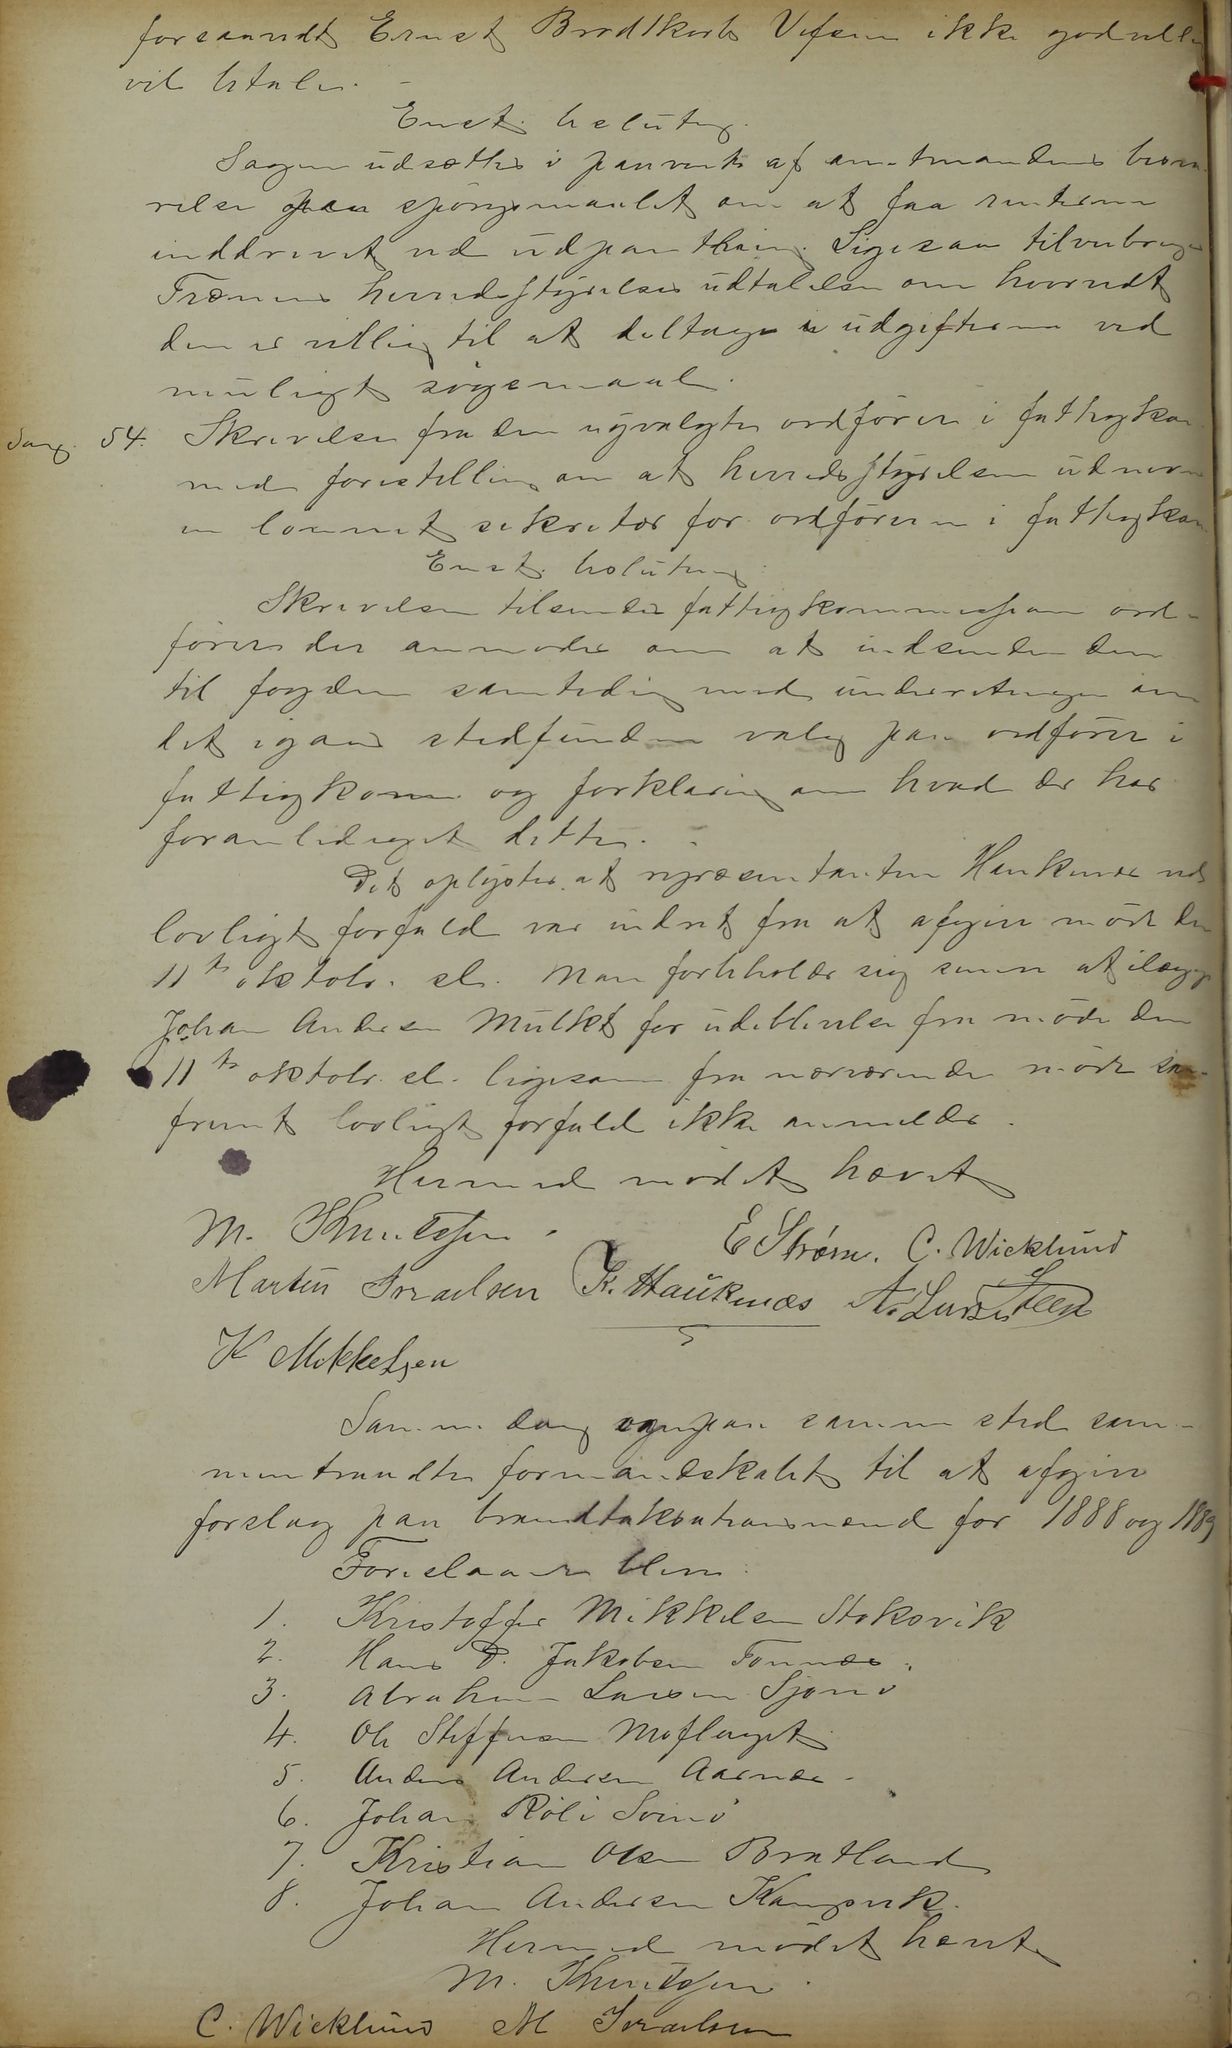 forsaavidt Ernst Brodtkorb Vefsen ikke godvillig
vil betale. -
Enst. beslutng.
Sagen udsættes i paavente af amtmandens besva-
relse paa spørgsmaalet om at faa renterne
inddrevet ved udpantning. Ligesaa tilveiebringes
Trænens herredsstyrelses udtalelse om hvorvidt
den er villig til at deltage i udgifterne ved
muligt søgsmaal.
Sag. 54. Skrivelse fra den nyvalgte ordfører i fattigkom
med forestilling om at herredsstyrelsen udnevner
en lønnet sekretær for ordføreren i fattigkom
Enst. beslutning:
Skrivelsen tilsendes fattigkommissionens ord-
fører der anmodes om at indsende den
til fogden samtidig med underretningen om
det igaar stedfundne valg paa ordfører i
fattigkomm. og forklaring om hvad der har
foranlediget dette.
Det oplystes at repræsentanten Haukenæs ved
lovligt forfald var indret fra at afgive møde den
11te oktobr. sl. Man forbeholder sig senere at ilægge
Johan Andersen Mulkt for udeblivelse fra møde den
11te oktobr. sl. ligesom fra nærværende møde saa-
fremt lovligt forfald ikke anmeldes.
Hermed mødet hævet
M. Knutssen. E Strøm. C. Wicklund
Martin Israelsen K. Haukenæs A. Larsen Steen
K Mikkelsen
Samme dag og paa samme sted sam-
mentraadte formandskabet til at afgive
forslag paa brandtakstationsmænd for 1888 og 1889
Foreslaaede blev:
1. Kristoffer Mikkelsen Stoksvik
2. Hans P. Jakobsen Tonnæs.
3. Abraham Larsen Sjonø
4. Ole Steffensen Moflaget
5. Anders Andersen Aarnæs.
6. Johan Röli Svinø
7. Kristian Olsen Bratland
8. Johan Andersen Kangsvik.
Hermed mødet hævet
M. Knutssen.
C. Wicklund M Israelsen